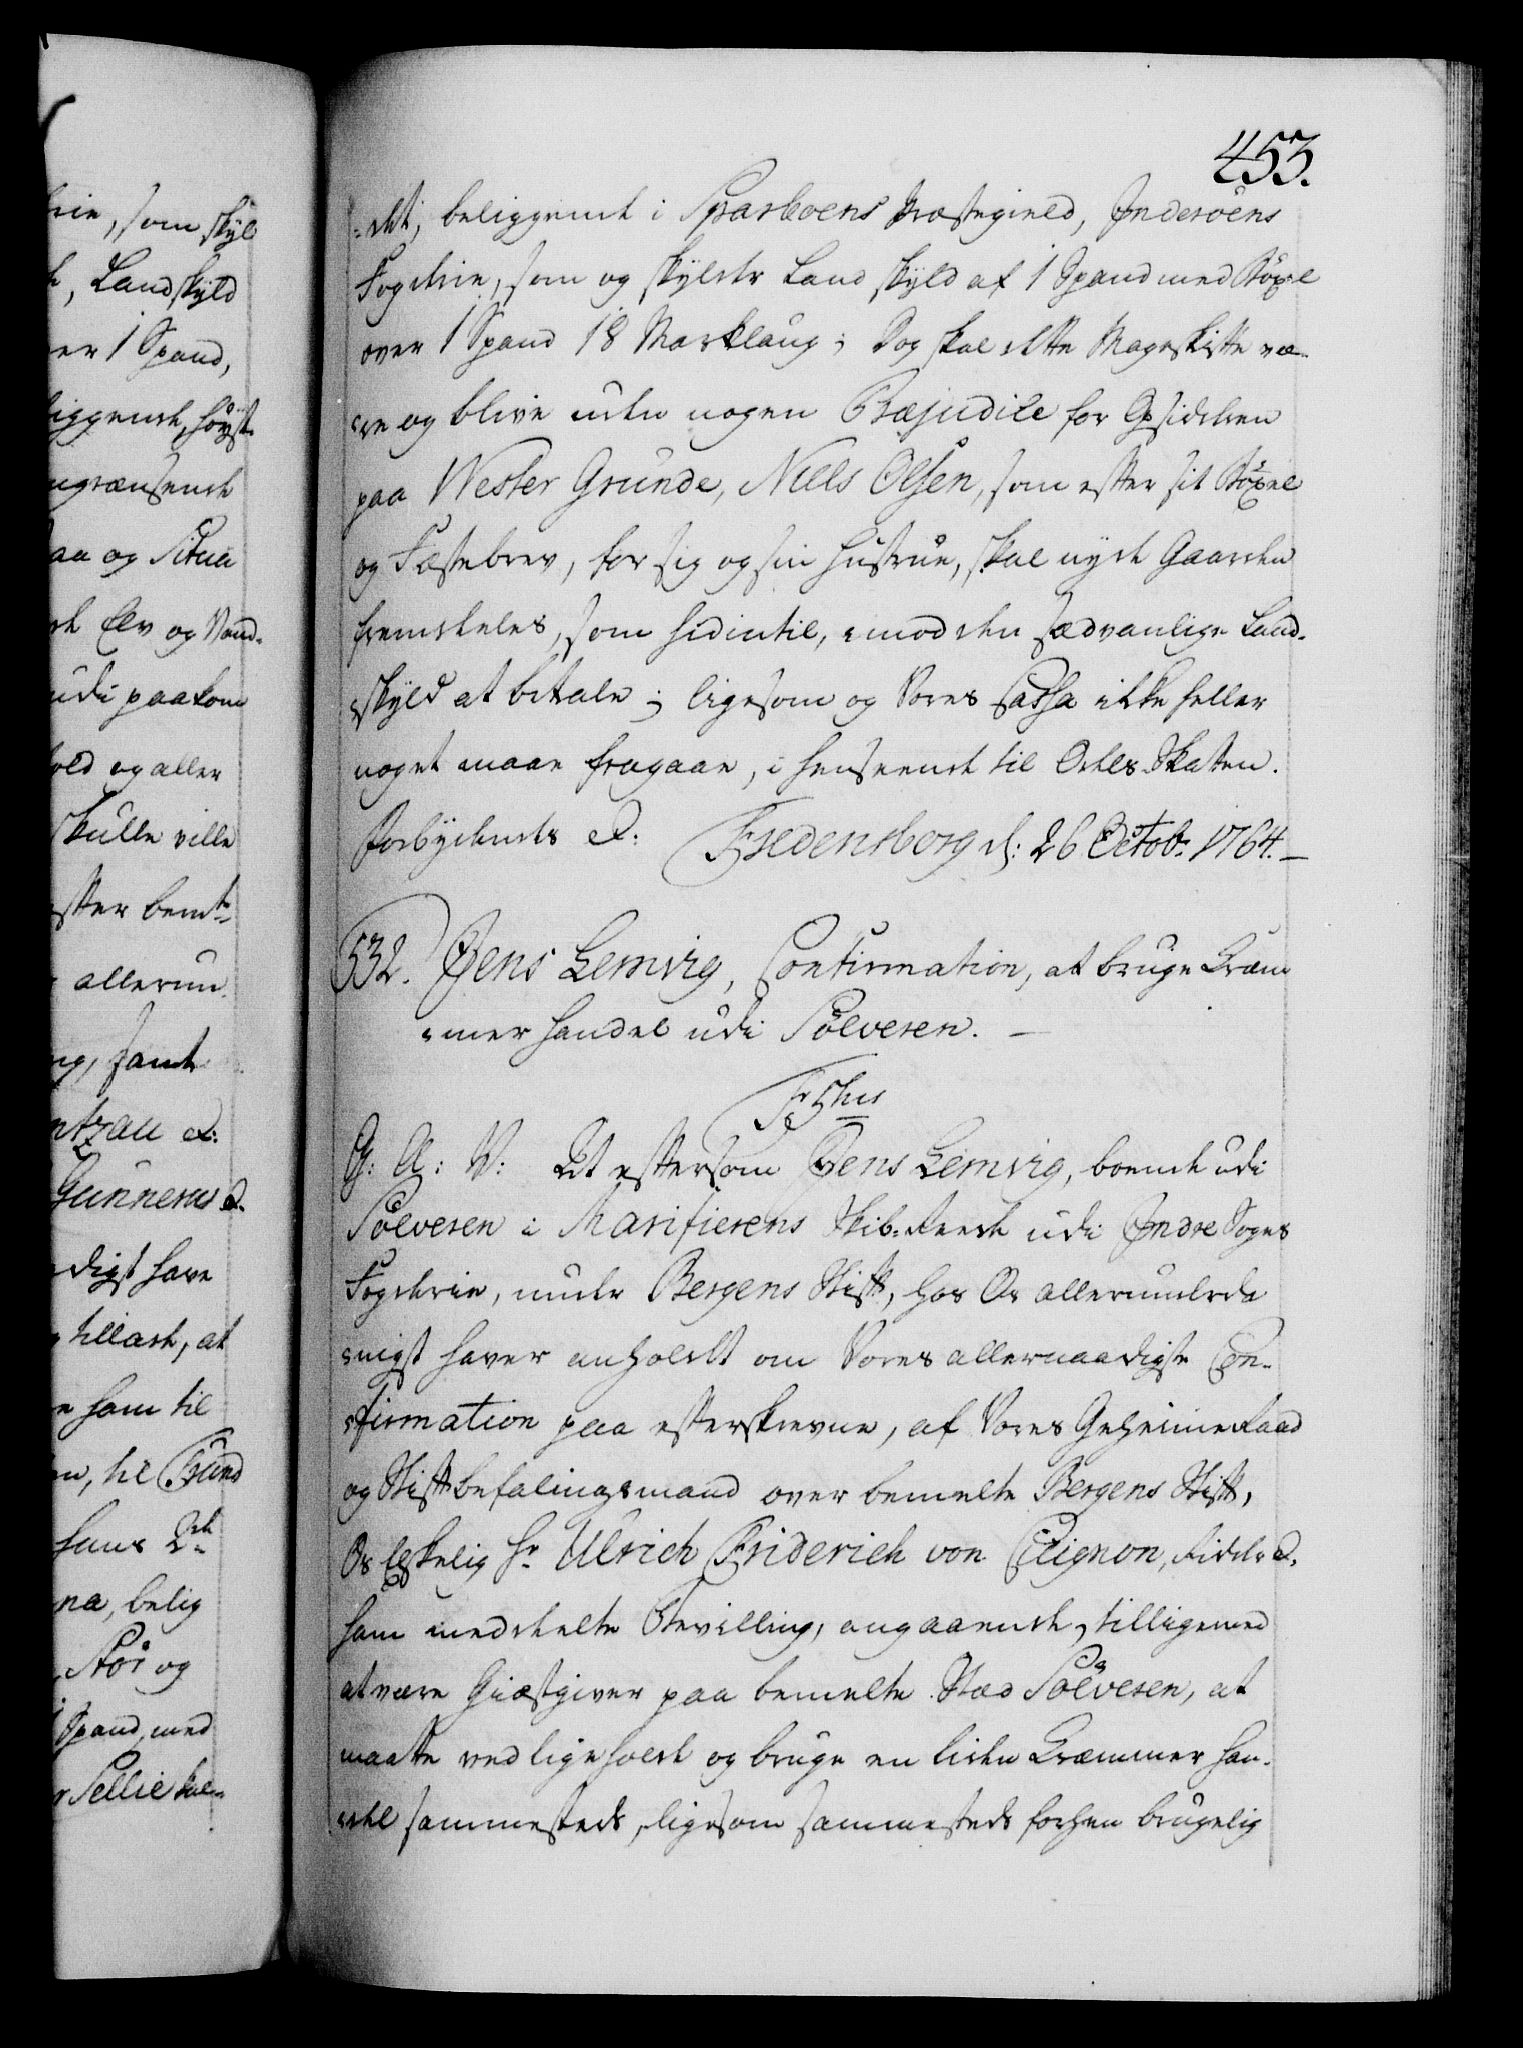 453.
=det, beliggende i Sparboens Præstegield, Inderöens
Fogderie, som og skylder Landskyld af 1 Spand med Böxel
over 1 Spand 18 Marklaug; Dog skal dette Mageskifte væ-
=re og blive uden nogen Præjudice for Opsidderen
paa Wester Grunde, Niels Olsen, som efter sit Böxel
og Fæstebrev, for sig og sin Hustrue, skal nyde Gaarden
fremdeles, som hidintil, imod den sædvanlige Land-
=skyld at betale; ligesom og Vores Cassa ikke heller
noget maae fragaae, i henseende til Odels-Skatten.
Forbydendes &: Fredensborg d: 26 Octob: 1764. —
532. Jens Lemvig, Confirmation, at bruge Cræm
=mer Handel udi Sölveren. —
G: A: V: At eftersom Jens Lemvig, boende udi
Sölveren i Marifierens Skib-Reede udi Indre Sogns
Fogderie, under Bergens Stift, hos Os allerunderda
=nigst haver anholdt om Vores allernaadigste Con-
=firmation paa efterskrevne, af Vores Geheime Raad
og Stiftbefalingsmand over bemelte Bergens Stift,
Os Elskelig Hr Ulrich Friderich von Cicignon, Ridder &.
ham meddeelte Bevilling, angaaende, tilligemed
at være Giæstgiver paa bemelte Stæd Sölveren, at
maatte vedligeholde og bruge en liden Cræmmer Han-
=del sammesteds, ligesom sammesteds forhen brugelig
rie, som skyl
, Landskyld
er 1 Spand,
liggende, höyst
ngrænsende
aa og Situa
de Elv og Vand-
udi paakom
old og aller
skulle ville
efter bemte
allerun
ng, samt
ntzau &:
Gunnerus &.
digst have
tillade, at
e ham til
n, til Trund
hans
na, belig
Stör og
Spand, med
Sellie kal-